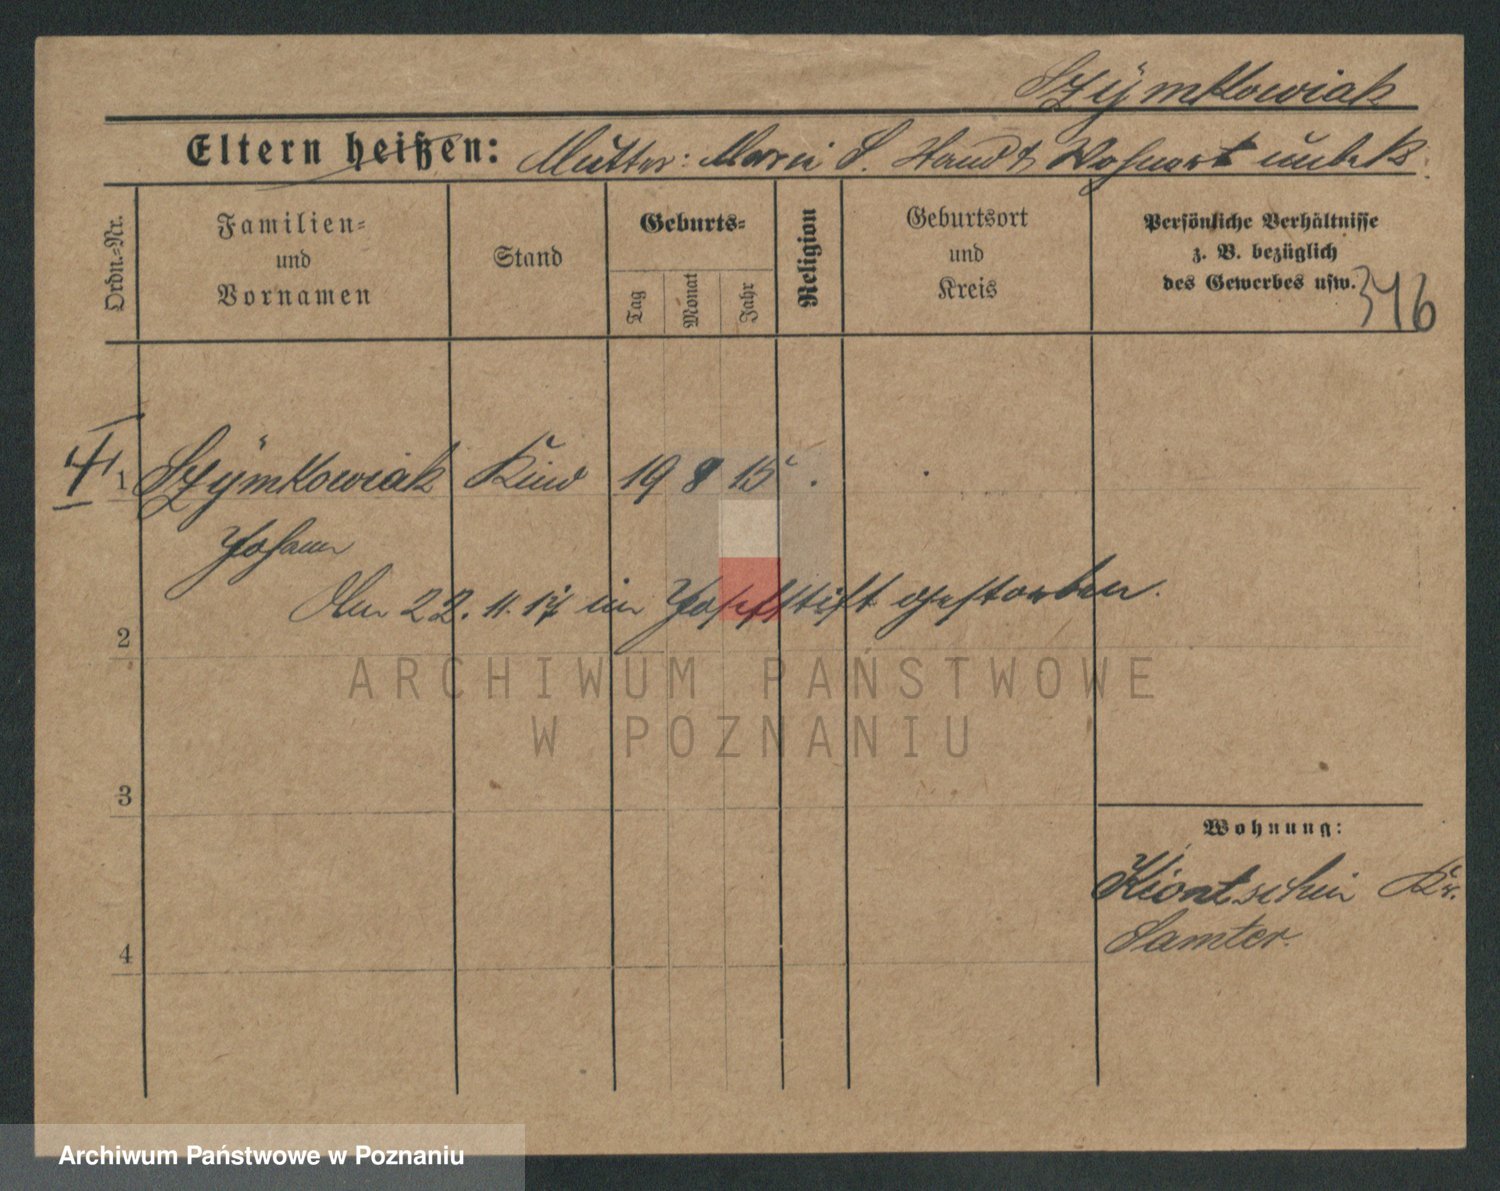 Szÿmkowiak
Eltern heißen: Mutter: Marie S. Stand & Wohnort unbek.
Ordn.-Nr.
Familien-
und
Vornamen
Stand
Geburts-
Tag
Monat
Jahr
Religion
Geburtsort
und
Kreis
Persönliche Verhältnisse
z. B. bezüglich
des Gewerbes usw.
346
1 Szÿmkowiak Kind 19 8 15
Johann
Am 22. 11. 17 im Josefstift gestorben.
2
ARCHIWUM PAŃSTWOWE
W POZNANIU
3
Wohnung:
Kiontschin Kr.
Samter.
4
Archiwum Państwowe w Poznaniu